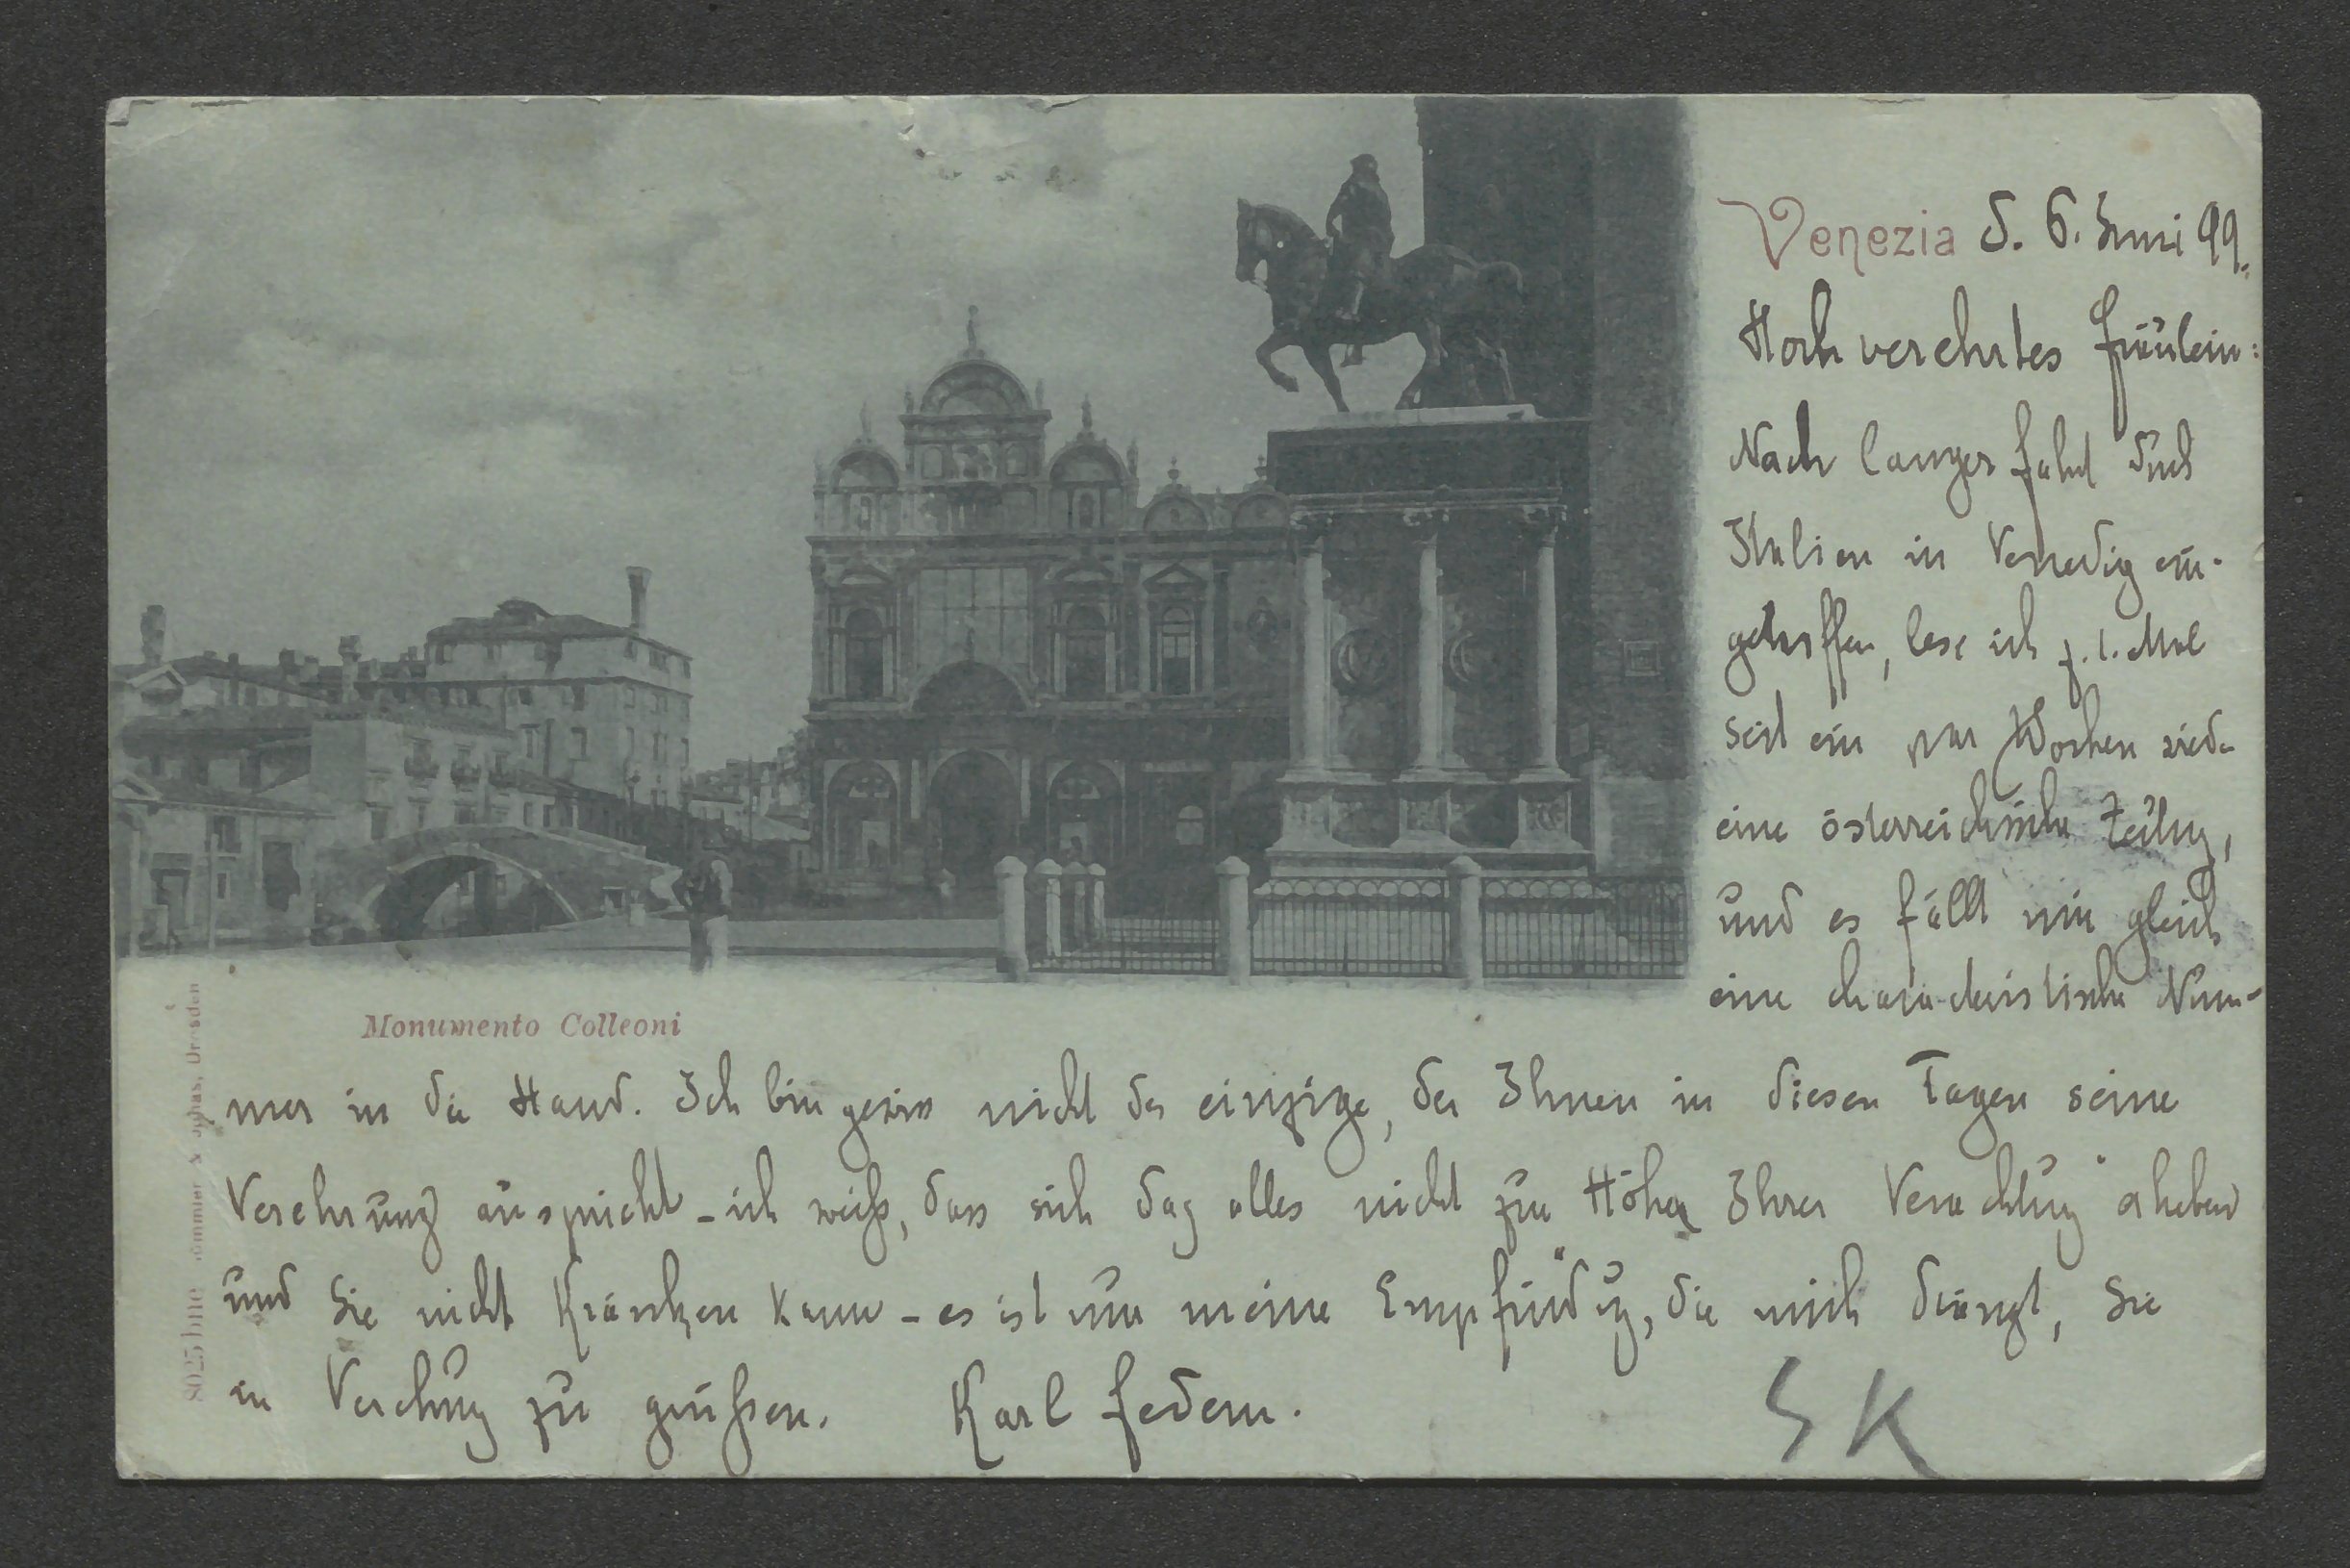 Venezia d. 6. Juni 99.
Hochverehrtes Fräulein:
Nach langer Fahrt durch
Italien in Venedig ein-
getroffen, lese ich z. 1. Mal
seit ein paar Wochen wieder
eine österreichische Zeitung,
und es fällt mir gleich
eine charakteristische Num-
Monumento Colleoni
mer in die Hand. Ich bin gewiss nicht der einzige, der Ihnen in diesen Tagen seine
Verehrung ausspricht - ich weiß, dass sich das alles nicht zur Höhe Ihrer Verachtung erheben
und Sie nicht kränken kann - es ist nur meine Empfindung, die mich drängt, Sie
in Verehrung zu grüßen. Karl Federn.
SK
8025 Dresden